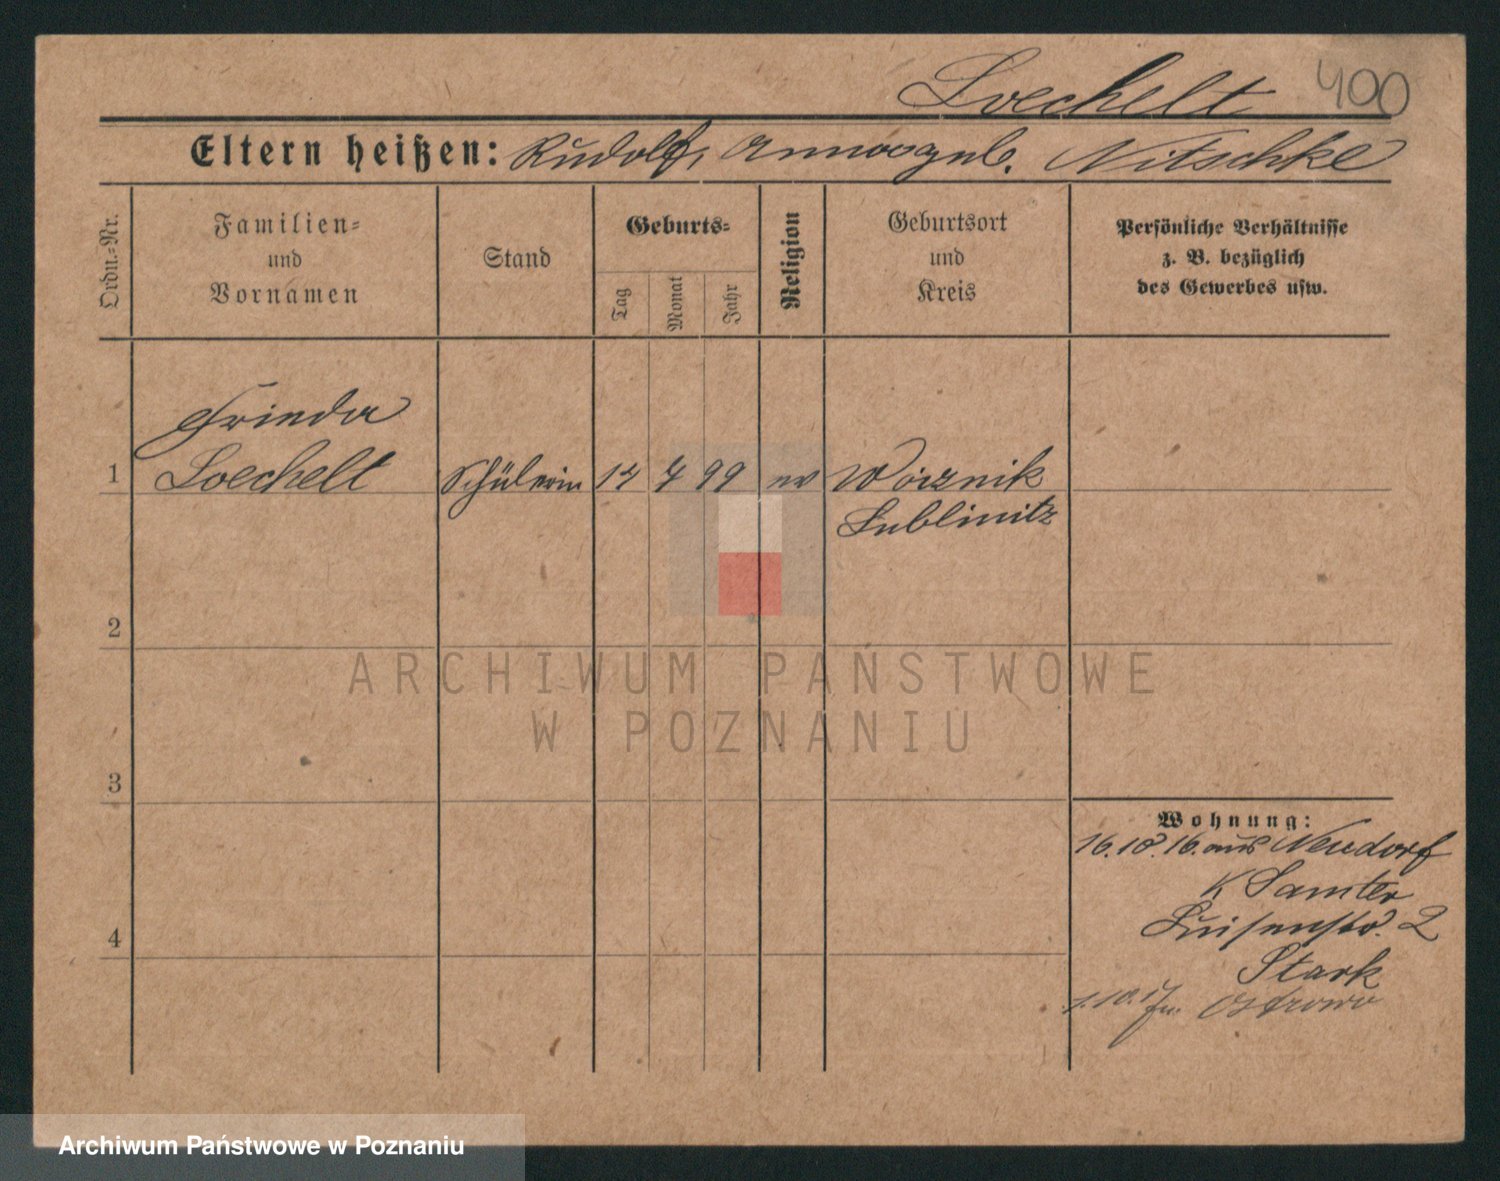 Loechelt 400
Eltern heißen: Rudolf, Anna geb. Nitschke
Ordn.-Nr.
Familien-
und
Vornamen
Stand
Geburts-
Tag
Monat
Jahr
Religion
Geburtsort
und
Kreis
Persönliche Verhältnisse
z. B. bezüglich
des Gewerbes usw.
Frieda
1 Loechelt Schülerin 14 4 99 ev Woiznik
Lublinitz
2
3
4
Wohnung:
16.10.16. aus Neudorf
K Samter
Luisenstr. 2
Stark
1.10.17 Ostrowo
ARCHIWUM PAŃSTWOWE
W POZNANIU
Archiwum Państwowe w Poznaniu